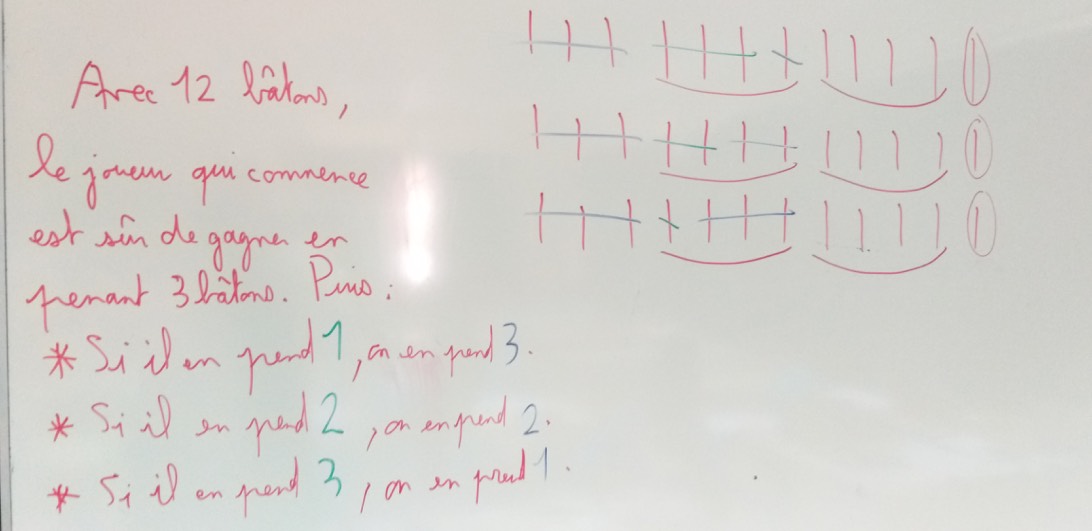 Avec 12 bâtons,
le joueur qui commence
est sûr de gagner en
prenant 3 bâtons. Puis :
* Si il en prend 1, on en prend 3.
* Si il en prend 2, on en prend 2.
* Si il en prend 3, on en prend 1.